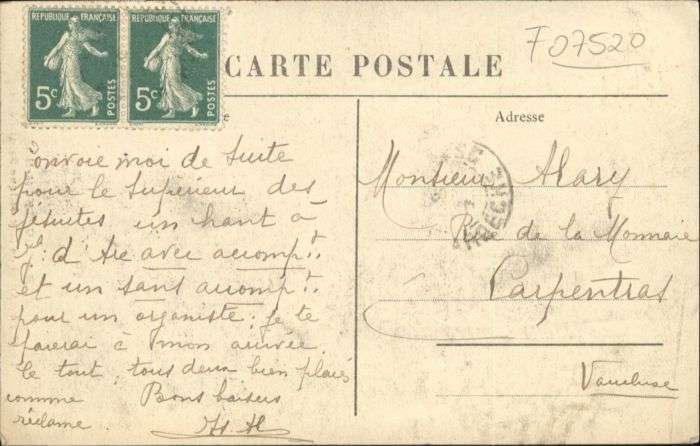 REPUBLIQUE FRANÇAISE
5c
POSTES
REPUBLIQUE FRANÇAISE
5c
POSTES
F 07520
CARTE POSTALE
Adresse
onvoie moi de suite
pour le Supérieur des
jésuites un chant à
J. d'Arc avec accompt.
et un sans accompt.
pour un organiste. Je te
paierai à mon arrivée
le tout. tous deux bien placés
comme
réclame.
Bons baisers
Monsieur Alary
Rue de la Monnaie
Carpentras
Vaucluse